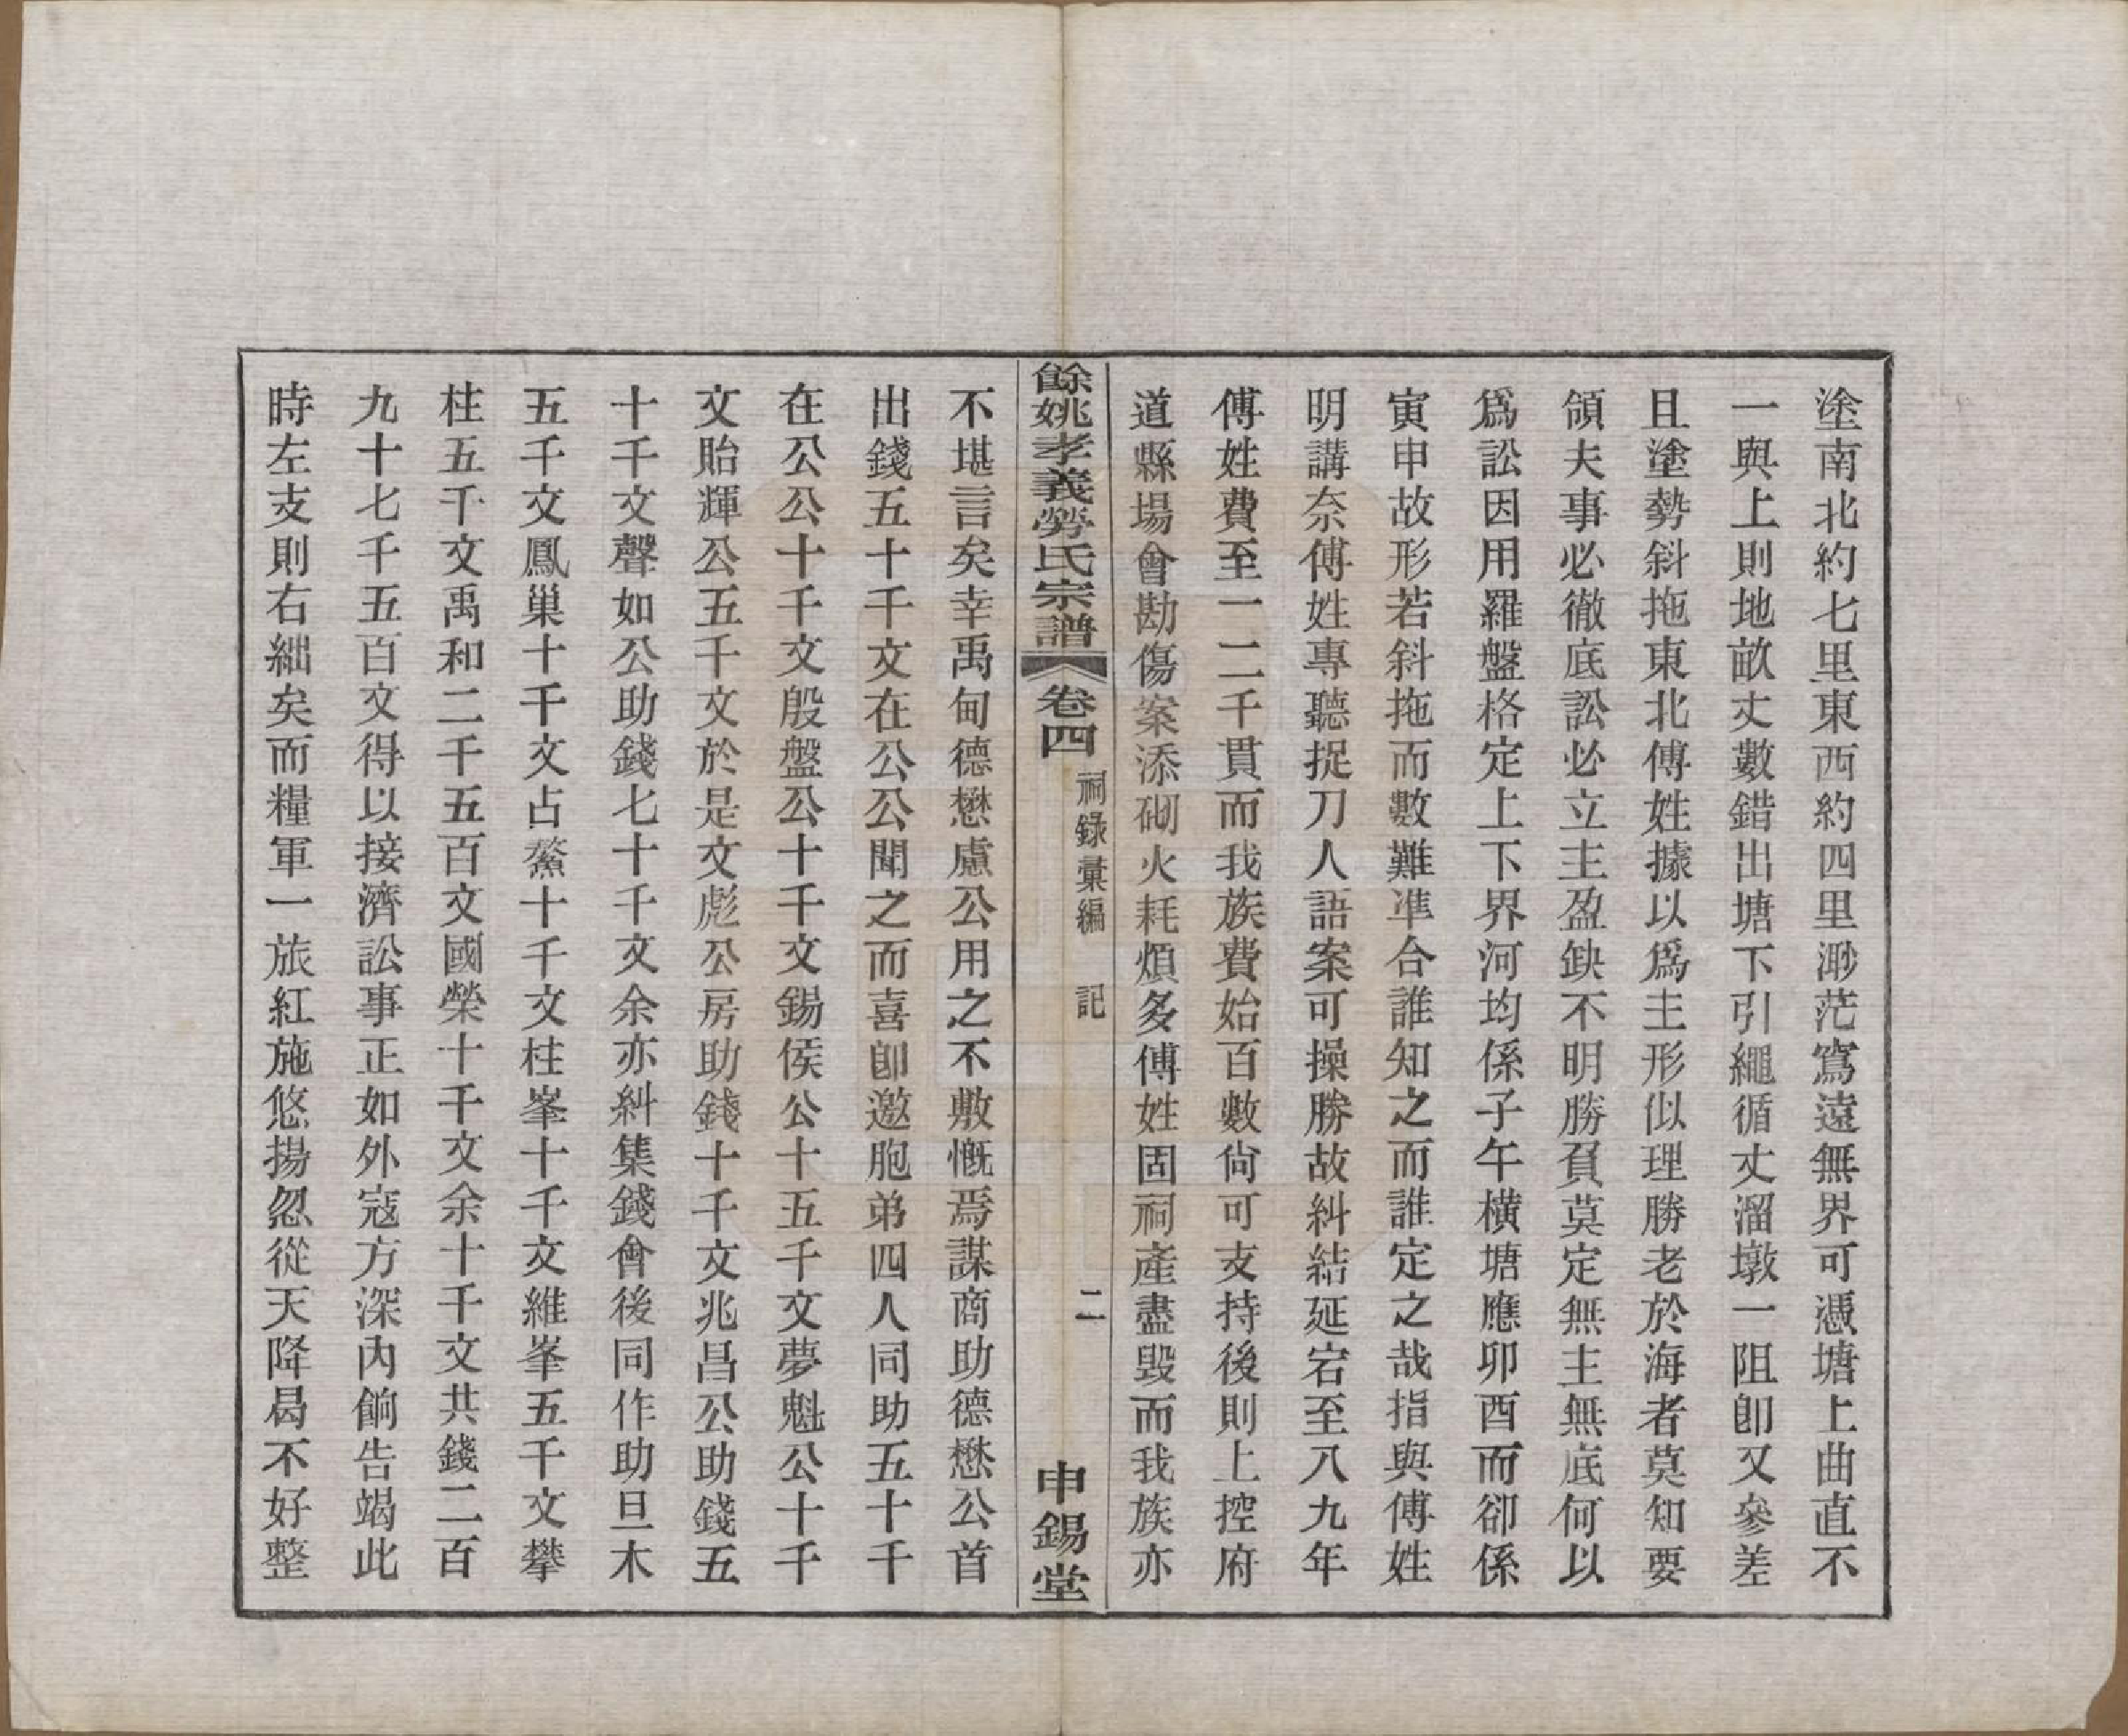 塗南北約七里東西約四里渺茫寫遠無界可憑塘上曲直不
一與上則地畝丈數錯出塘下引繩循丈溜墩一阻卽又參差
且塗勢斜拖東北傅姓據以爲主形似理勝老於海者莫知要
領夫事必徹底訟必立主盈缺不明勝負莫定無主無底何以
爲訟因用羅盤格定上下界河均係子午橫塘應卯酉而卻係
寅申故形若斜拖而數難準合誰知之而誰定之哉指與傅姓
明講奈傅姓專聽捉刀人語案可操勝故糾結延宕至八九年
傅姓費至一二千貫而我族費始百數尙可支持後則上控府
道縣場會勘傷案添砌火耗煩多傅姓固祠產盡毀而我族亦
餘姚孝義勞氏宗譜 卷四 祠錄彙編 記 二 申錫堂
不堪言矣幸禹甸德懋慮公用之不敷慨焉謀商助德懋公首
出錢五十千文在公公聞之而喜卽邀胞弟四人同助五十千
在公公十千文殷盤公十千文錫侯公十五千文夢魁公十千
文貽輝公五千文於是文彪公房助錢十千文兆昌公助錢五
十千文聲如公助錢七十千文余亦糾集錢會後同作助旦木
五千文鳳巢十千文占鰲十千文桂峯十千文維峯五千文攀
柱五千文禹和二千五百文國榮十千文余十千文共錢二百
九十七千五百文得以接濟訟事正如外寇方深內餉告竭此
時左支則右絀矣而糧軍一旅紅施悠揚忽從天降曷不好整